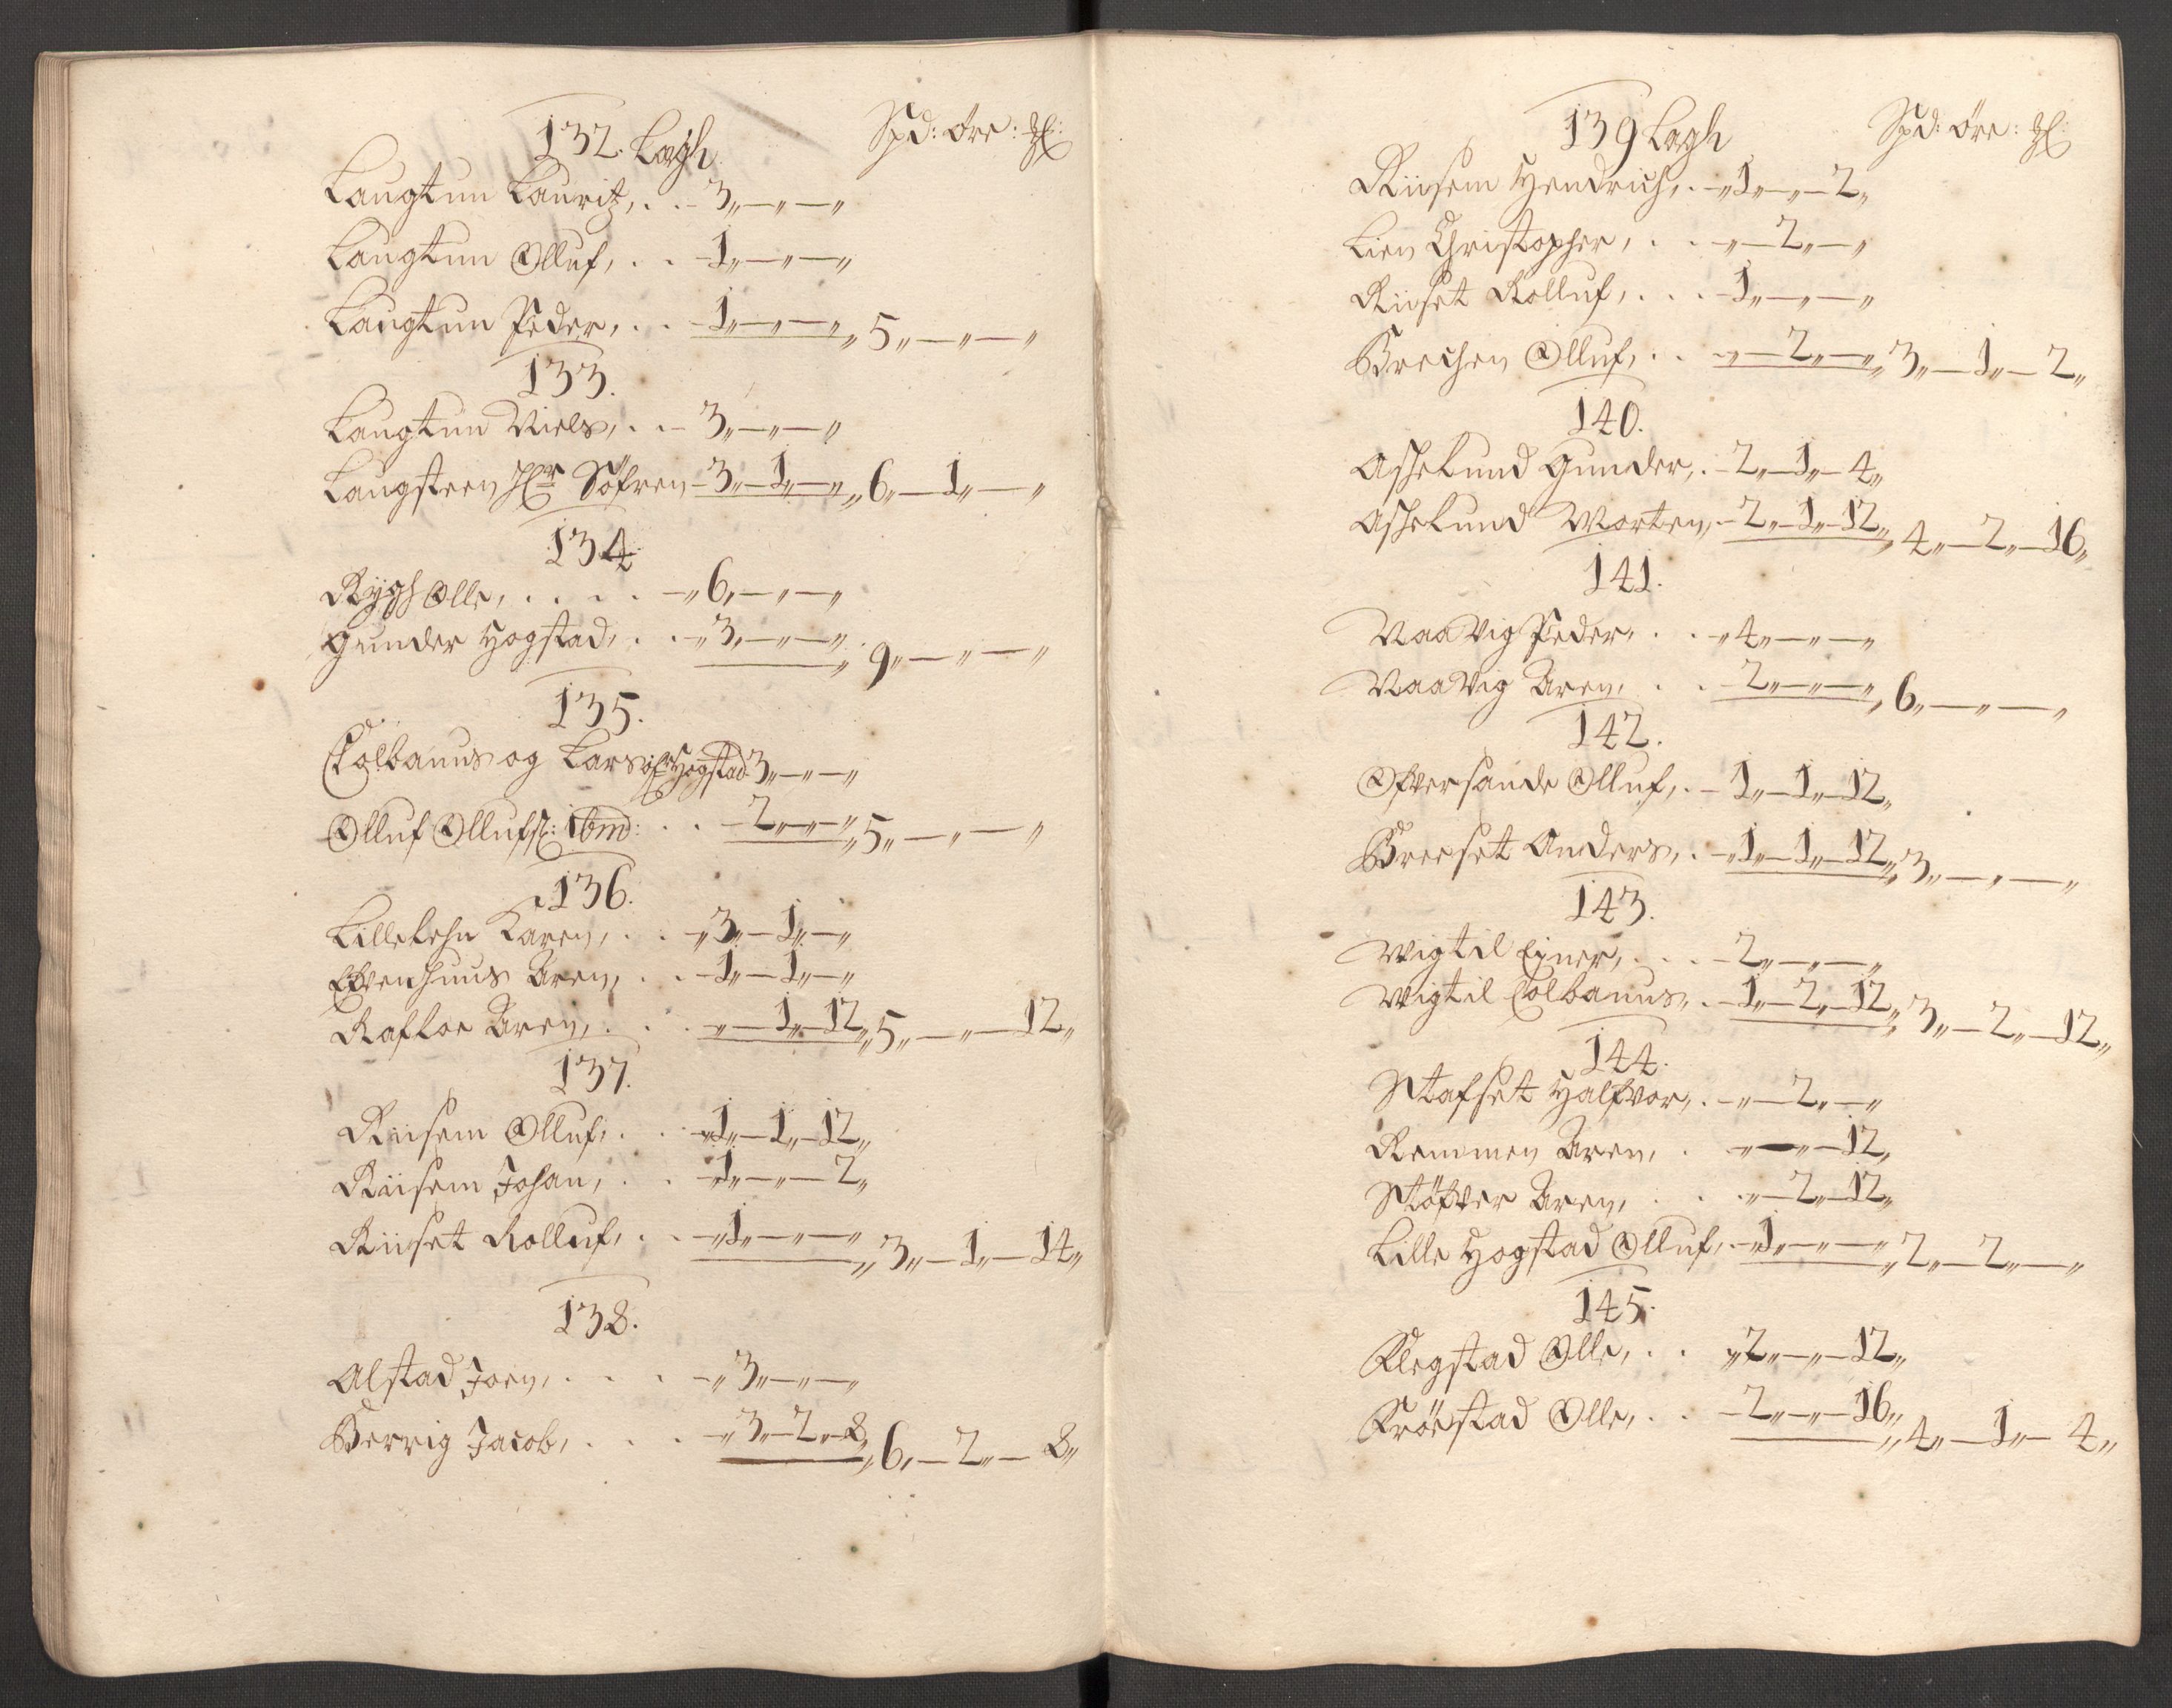 132. Lagh Spd: öre: ₰:
Laugtun Lauritz, . . - 3„—„—„
Laugtun Olluf, . . - 1„—„—„
Laugtun Peder, . . - 1„—„—„ 5„—„—„
133.
Laugtun Niels, . . - 3„—„—„
Laugsteen Hr Söfren - 3„—1„—„ 6„—1„—„
134
Rygh Olle, . . . . -„ 6„—„—„
Gunder Hogstad, . . -„ 3„—„—„ 9„—„—„
135.
Colbanus og Lars Hogstad 3„—„—„
Olluf Ollufs: ibm: . . - 2„—„—„ 5„—„—„
136.
Lillelehn Karen, . . -„ 3„—1„—„
Efvenhuus Aren, . . - 1„—1„—„
Rafloe Aren, . . . -„—1„—12„ 5„—„—12„
137.
Riisem Olluf, . . -„ 1„—1„—12„
Riisem Johan, . . - 1„—„—2„
Riiset Rolluf, . . -„ 1„—„—„ 3„—1„—14„
138.
Alstad Joen, . . . -„ 3„—„—„
Berrig Jacob, . . . -„ 3„—2„—8„ 6„—2„—8„
139 Lagh Spd: öre: ₰:
Riisem Hendrich, . -„ 1„—„—2„
Lien Christopher, . . -„—2„—„
Riiset Rolluf, . . . - 1„—„—„
Brechen Olluf, . . -„—2„—„ 3„—1„—2„
140.
Asshelund Gunder, . - 2„—1„—4„
Asshelund Morten, - 2„—1„—12„ 4„—2„—16„
141.
Vaavig Peder, . . -„ 4„—„—„
Vaavig Aren, . . - 2„—„—„ 6„—„—„
142.
Ofversande Olluf, . - 1„—1„—12„
Breeset Anders, . -„ 1„—1„—12„ 3„—„—„
143.
Wigtil Einer, . . . - 2„—„—„
Wigtil Colbanus, . - 1„—2„—12„ 3„—2„—12„
144.
Stafset Halfvor, . -„—2„—„
Remmen Aren, . -„—„—12„
Stöfver Aren, . . . -„—2„—12„
Lille Hogstad Olluf, - 1„—„—„ 2„—2„—„
145.
Flegstad Olle, . . „2„—„—12„
Fröstad Olle, . . - 2„—„—16„ 4„—1„—4„